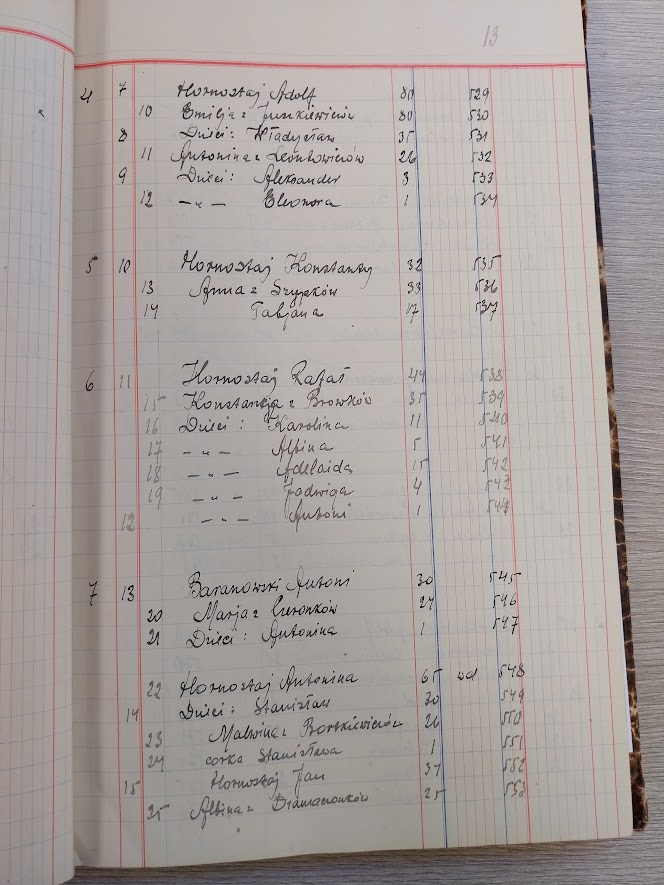 13
4 7 Hornostaj Adolf 80 529
10 Emilja z Juszkiewiczów 80 530
8 Dzieci: Władysław 35 531
11 Antonina z Leontowiczów 26 532
9 Dzieci: Aleksander 3 533
12 —„— Eleonora 1 534
5 10 Hornostaj Konstanty 32 535
13 Anna z Szypków 33 536
14 Tabjana 17 537
6 11 Hornostaj Rafał 44 538
15 Konstancja z Browków 35 539
16 Dzieci: Karolina 11 540
17 —„— Albina 5 541
18 —„— Adelaida 15 542
19 —„— Jadwiga 4 543
12 —„— Antoni 1 544
7 13 Baranowski Antoni 30 545
20 Marja z 24 546
21 Dzieci: Antonina 1 547
22 Hornostaj Antonina 65 wd 548
14 Dzieci: Stanisław 30 549
23 Malwina z Bortkiewiczów 26 550
24 córka Stanisława 1 551
15 Hornostaj Jan 37 552
25 Albina z 25 553